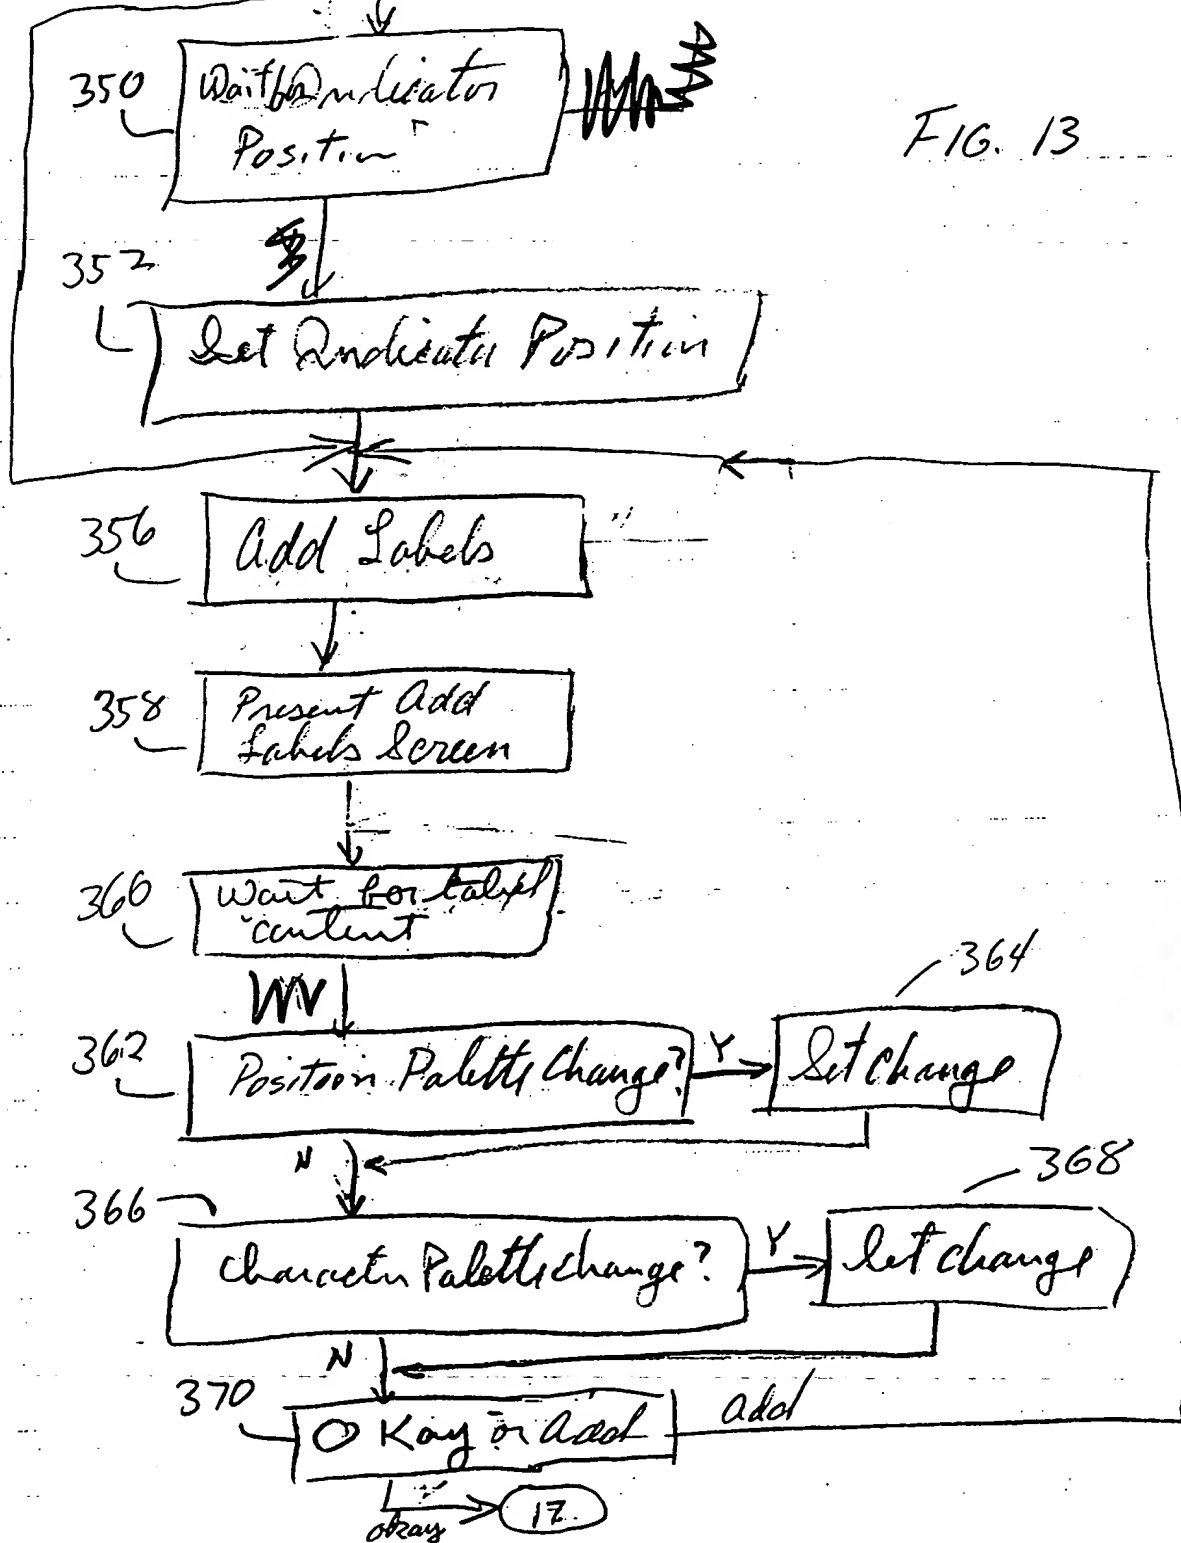 350
Wait for Indicator
Position
FIG. 13
352
Set Indicator Position
356
Add Labels
358
Present Add
Labels Screen
360
Wait for label
content
364
362
Position Palette Change?
Y
Set Change
N
368
366
Character Palette change?
Y
Set change
N
370
OKay or Add
add
okay
17